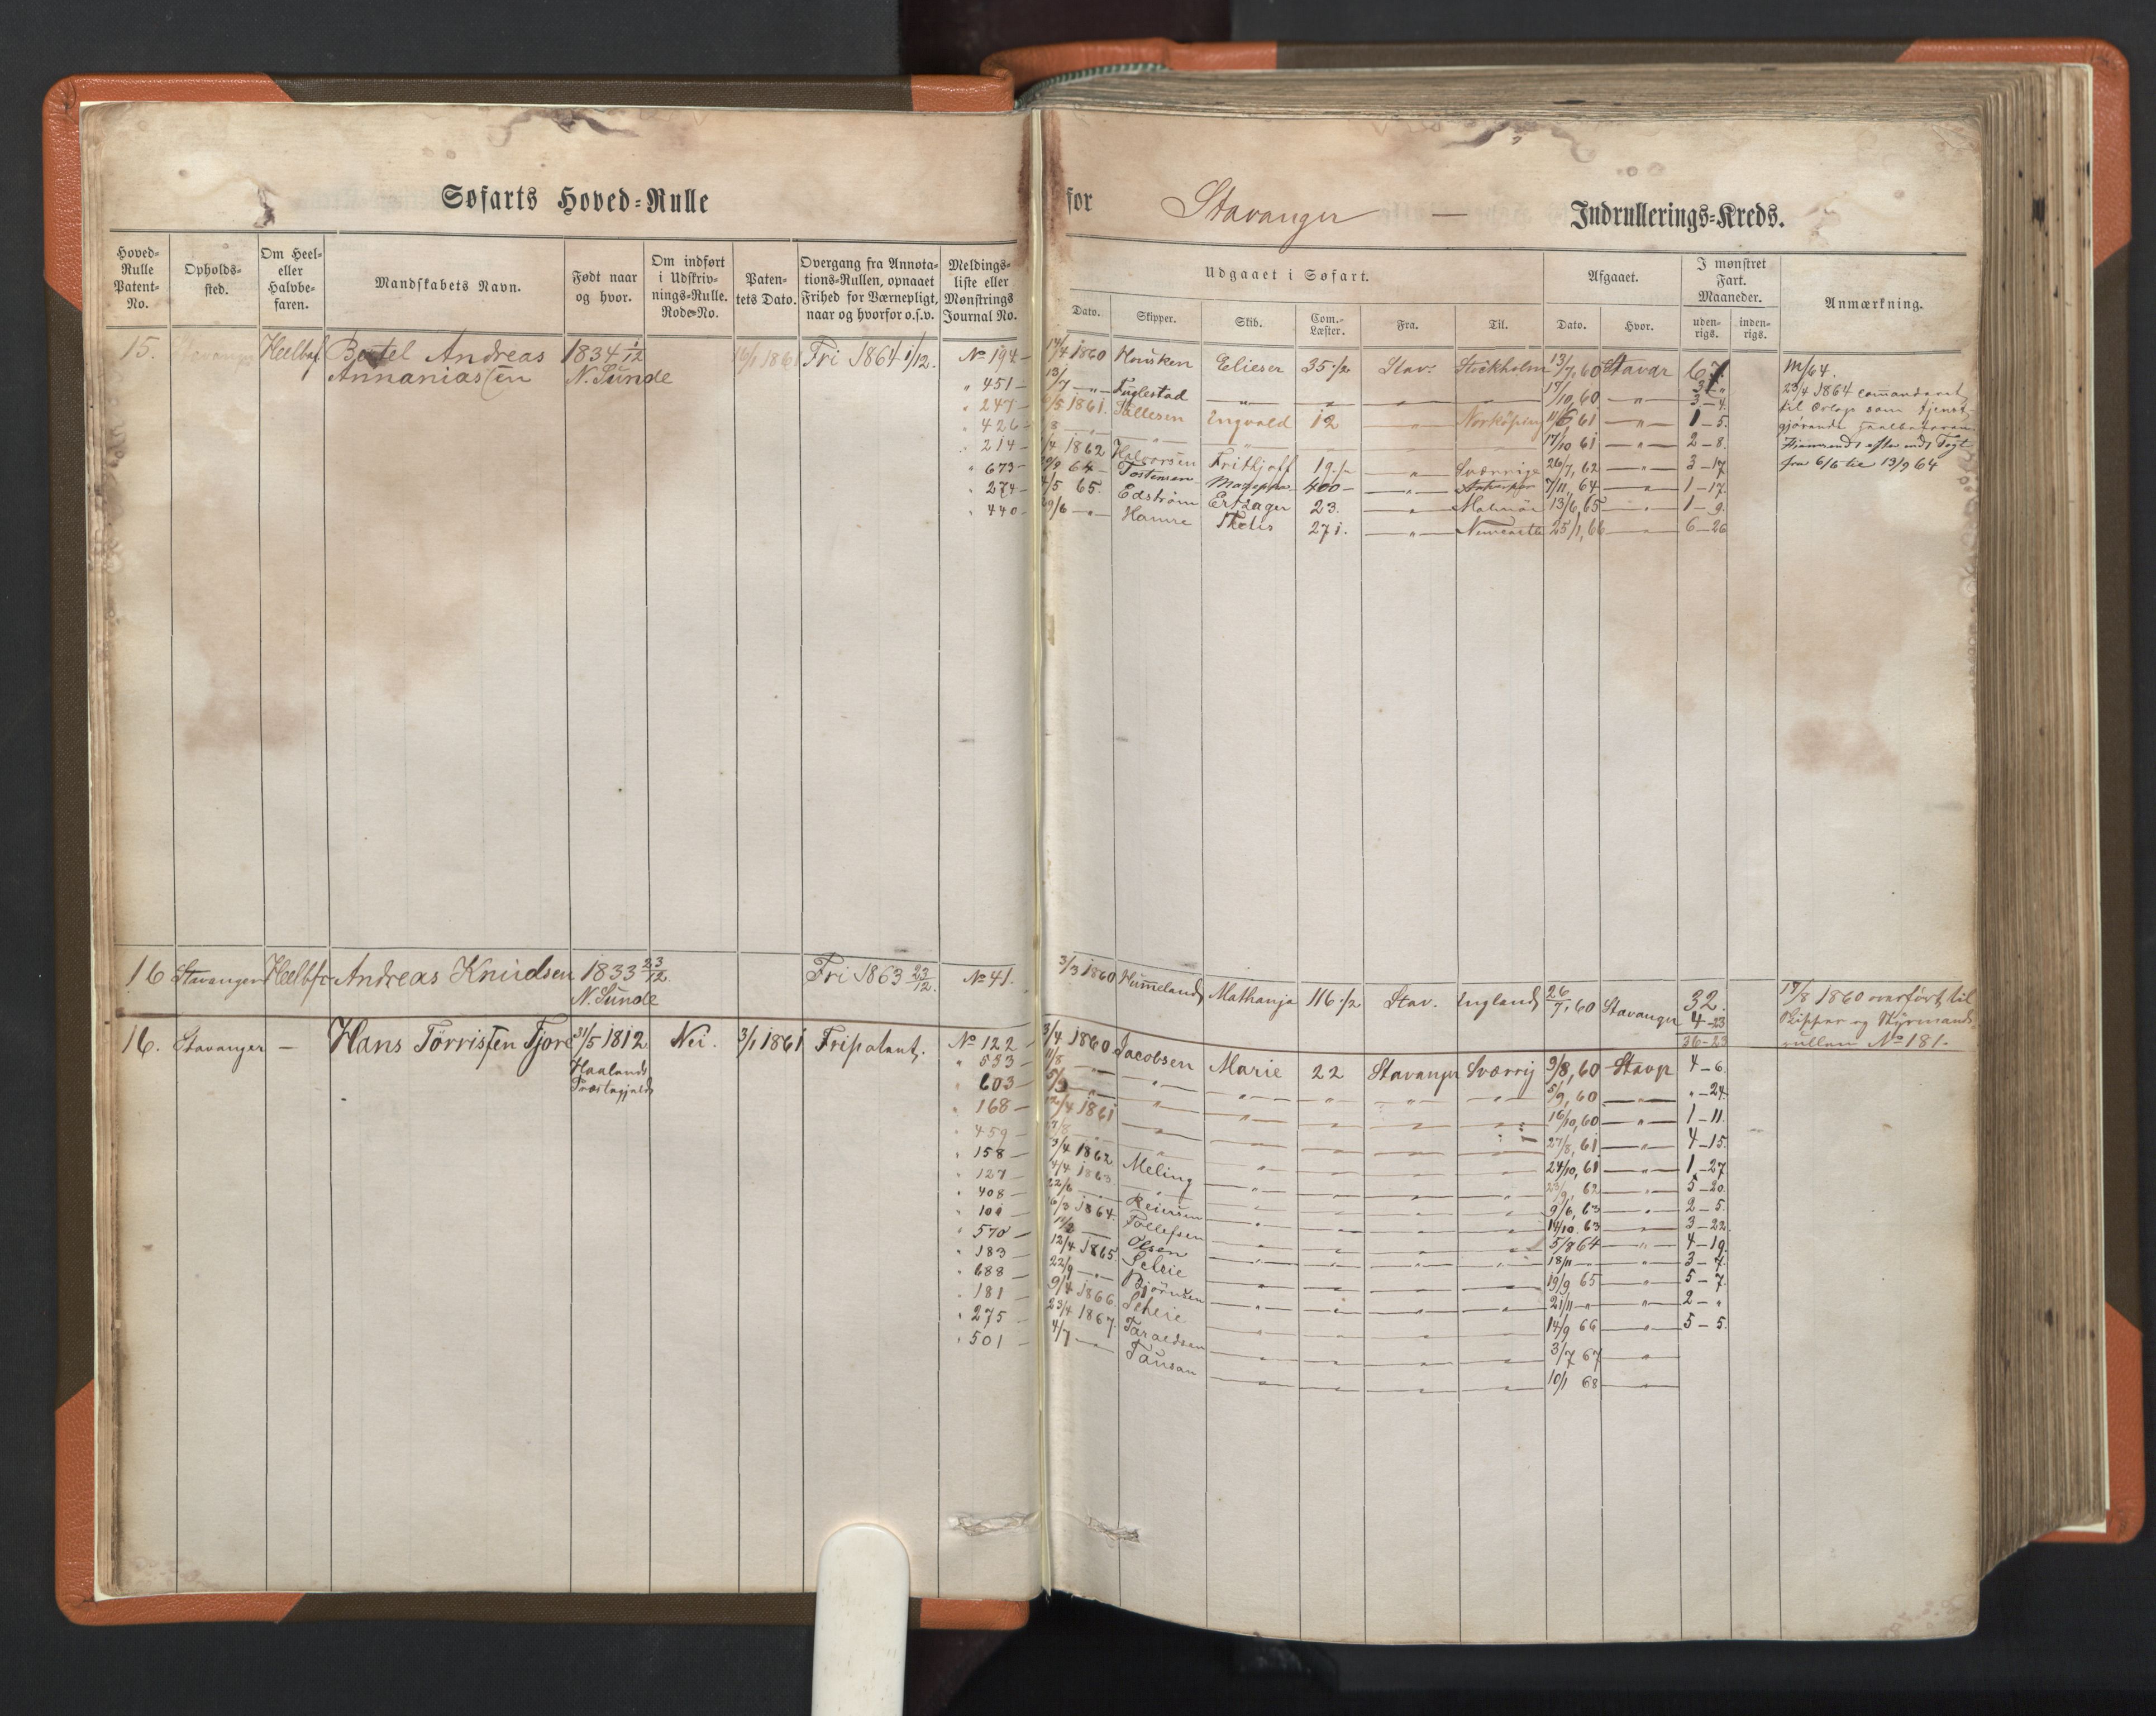 Søfarts Hoved-Rulle
for Stavanger — Indrullerings-Kreds.
Hoved-Rulle Patent-No.
Opholds-sted.
Om Heel- eller Halvbe-faren.
Mandskabets Navn.
Født naar og hvor.
Om indført i Udskriv-nings-Rulle. Rode-No.
Paten-tets Dato.
Overgang fra Annota-tions-Rullen, opnaaet Frihed for Værnepligt, naar og hvorfor o.s.v.
Meldings-liste eller Mønstrings Journal No.
Udgaaet i Søfart.
Dato. Skipper. Skib. Com.-Læster. Fra. Til.
Afgaaet.
Dato. Hvor.
I mønstret Fart. Maaneder.
uden-rigs. inden-rigs.
Anmærkning.
15. Stavanger Heelbef. Bertel Andreas Annaniasſen 1834 1/12 N. Sunde 16/1 1861 Fri 1864 1/12.
No 194 – 14/4 1860 Housken Elieser 35 1/2 Stav. Stockholm 13/7, 60 Stavgr 67
" 451 – 13/7 — " — Fuglestad — " — 17/10, 60 — " — 3 – "
" 247 – /5 1861. Tallesen Engvald 12 — " — Norköping 11/6 61 — " — 3 – 4.
" 426 – 17/10 61 — " — 1 – 5.
" 214 – /4 1862 Halvorsen Frithjoff 19 — " — Sverrige 26/7, 62 — " — 2 – 8.
" 673 – 64 – Tostensen 400 – — " — 7/11, 64 — " — 3 – 17.
" 274 – /5 65. Edström Ertzager 23. — " — Malmöe 13/6, 65 — " — 1 – 17.
" 440 – 29/6 — " — Hamre 271. — " — Newcastle 25/1, 66 — " — 1 – 9.
6 – 26
M/64.
23/4 1864 commanderet
til Orlogs som tjenst-
gjørende
fra 6/6 til 13/9 64
16 Stavanger Heelbfr Andreas Knudsen 1833 23/12. N. Sunde Fri 1863 23/12. No 41.
3/3 1860 Hummeland Mathanja 116 1/2 Stav. England 26/7, 60 Stavanger 32.
4 – 23
36 – 23
17/8 1860 overført til
Skipper og Styrmands-
rullen No 181.
16. Stavanger — Hans Tørrisſen Tjore 31/5 1812 Haalands Præstegjeld Nei. 3/1 1861 Fripatent.
No 122 – 3/4 1860 Jacobsen Marie 22 Stavanger Sverrig 9/8, 60 Stavgr 4 – 6.
" 533 – 11/8 — " — 5/9, 60 — " — " – 24.
" 603 – 5/9 — " — 16/10, 60 — " — 1 – 11.
" 168 – 12/4 1861 — " — 27/8, 61 — " — 4 – 15.
" 459 – 27/8 — " — 24/10, 61 — " — 1 – 27.
" 158 – 3/4 1862 Meling — " — 23/9, 62 — " — 5 – 20.
" 127 – 4/4 1863 — " — 9/6, 63 — " — 2 – 5.
" 408 – 22/6 — " — Reiersen — " — 14/10 63 — " — 3 – 22.
" 101 – 16/3 1864. Tollefsen — " — 5/8 64 — " — 4 – 19.
" 570 – Olsen — " — 18/11 — " — 3 – 4.
" 183 – 12/4 1865 Scheie — " — 19/9 65 — " — 5 – 7.
" 688 – 22/9 — " — Bjørnsen — " — 21/11 — " — 2 – "
" 181 – 9/4 1866. Scheie — " — 14/9 66 — " — 5 – 5.
" 275 – 23/4 1867. Taraldsen — " — 3/7 67 — " —
" 501 – 4/7 — Tausan — " — 10/1 68 — " —